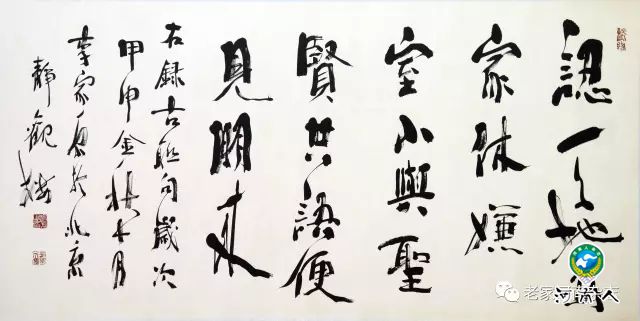 認天地為
家休嫌
室小與聖
賢共語便
見朋來
右錄古聯句歲次
甲申金秋七月
李家原於北京
靜觀樓
河南人
老家